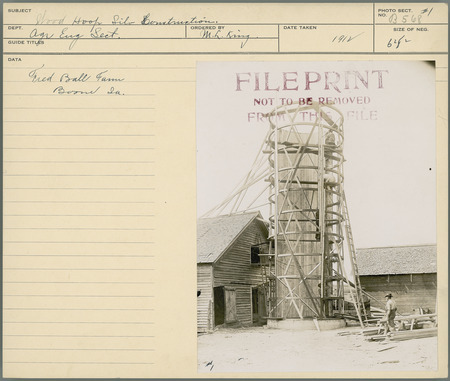 SUBJECT Wood Hoop Silo Construction. PHOTO SECT. NO. B 568 #1
DEPT. Agr Eng Sect. ORDERED BY M.L. King. DATE TAKEN 1912 SIZE OF NEG.
GUIDE TITLES
DATA
Fred Ball Farm
Boone Ia.
FILEPRINT
NOT TO BE REMOVED
FROM THIS FILE